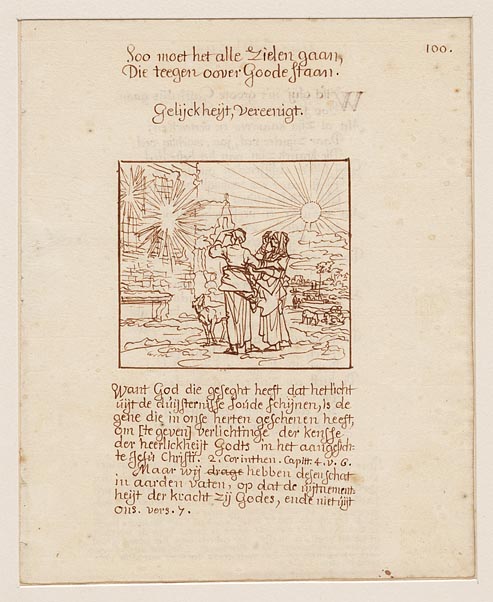 Soo moet het alle Zielen gaan,
Die teegen oover Goode staan.
100.
Gelijckheijt, Vereenigt.
Want God die geseght heeft dat het licht
uijt de duijsternisse soude schijnen, is de
gene die in onse herten geschenen heeft,
om te geven verlichtinge der kennisse
der heerlickheijt Godts in het aangesich-
te Jesu Christi. 2. Corinthen. Capitt. 4. v. 6.
Maar wij drage hebben desen schat
in aarden vaten, op dat de uijtnement-
heijt der kracht zij Godes, ende niet uijt
ons. vers. 7.